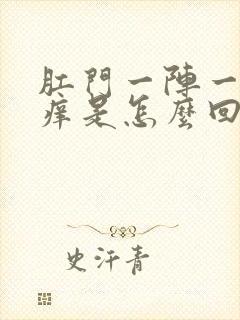 肛門一陣一
痒是怎麼回
史汗青